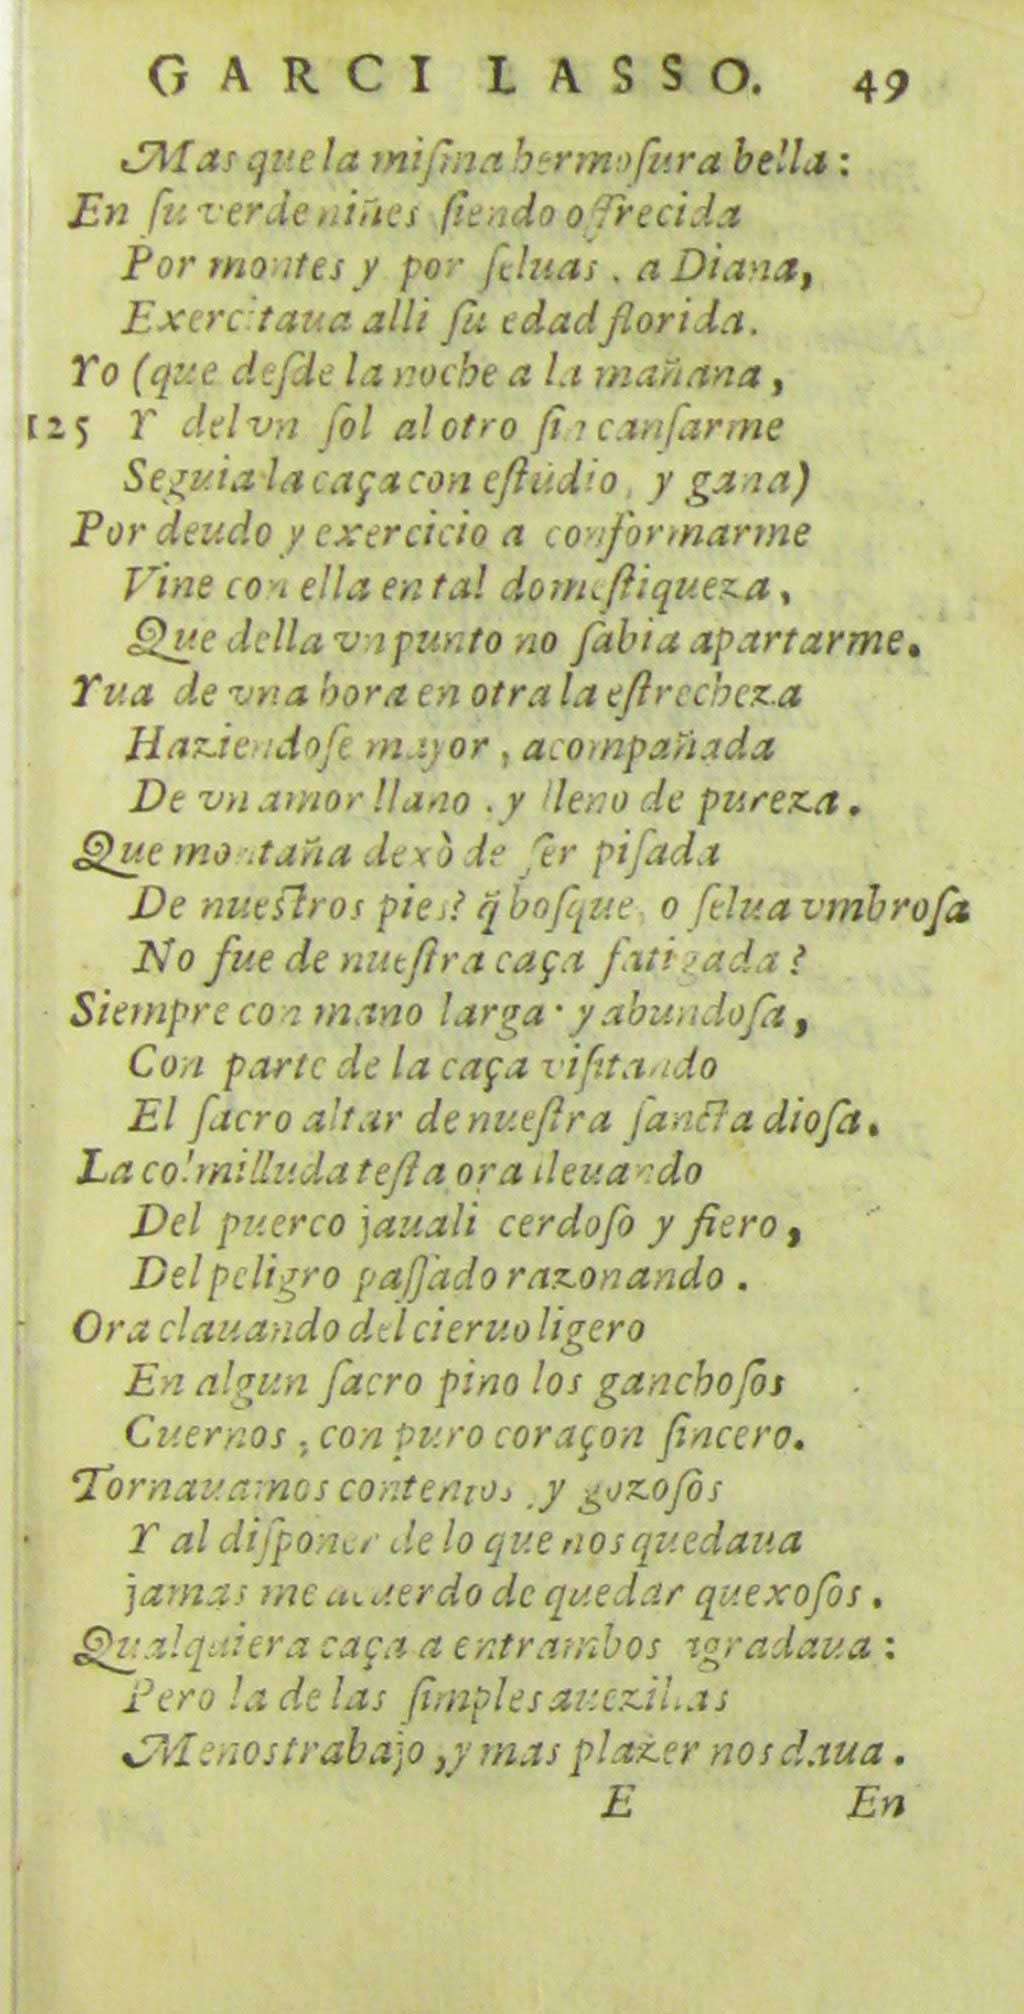 GARCI LASSO. 49
Mas que la miſma hermoſura bella:
En ſu verde niñes ſiendo offrecida
Por montes y por ſeluas, a Diana,
Exercitaua alli ſu edad florida.
Yo (que deſde la noche a la mañana,
125 Y del vn ſol al otro ſin canſarme
Seguia la caça con eſtudio, y gana)
Por deudo y exercicio a conformarme
Vine con ella en tal domeſtiqueza,
Que della vn punto no ſabia apartarme.
Yua de vna hora en otra la eſtrecheza
Haziendoſe mayor, acompañada
De vn amor llano, y lleno de pureza.
Que montaña dexò de ſer piſada
De nueſtros pies? q̃ boſque, o ſelua vmbroſa
No fue de nueſtra caça fatigada?
Siempre con mano larga, y abundoſa,
Con parte de la caça viſitando
El ſacro altar de nueſtra ſancta dioſa.
La colmilluda teſta ora lleuando
Del puerco jauali cerdoſo y fiero,
Del peligro paſſado razonando.
Ora clauando del cieruo ligero
En algun ſacro pino los ganchoſos
Cuernos, con puro coraçon ſincero.
Tornauamos contentos, y gozoſos
Y al diſponer de lo que nos quedaua
jamas me acuerdo de quedar quexoſos.
Qualquiera caça a entrambos agradaua:
Pero la de las ſimples auezillas
Menos trabajo, y mas plazer nos daua.
E En